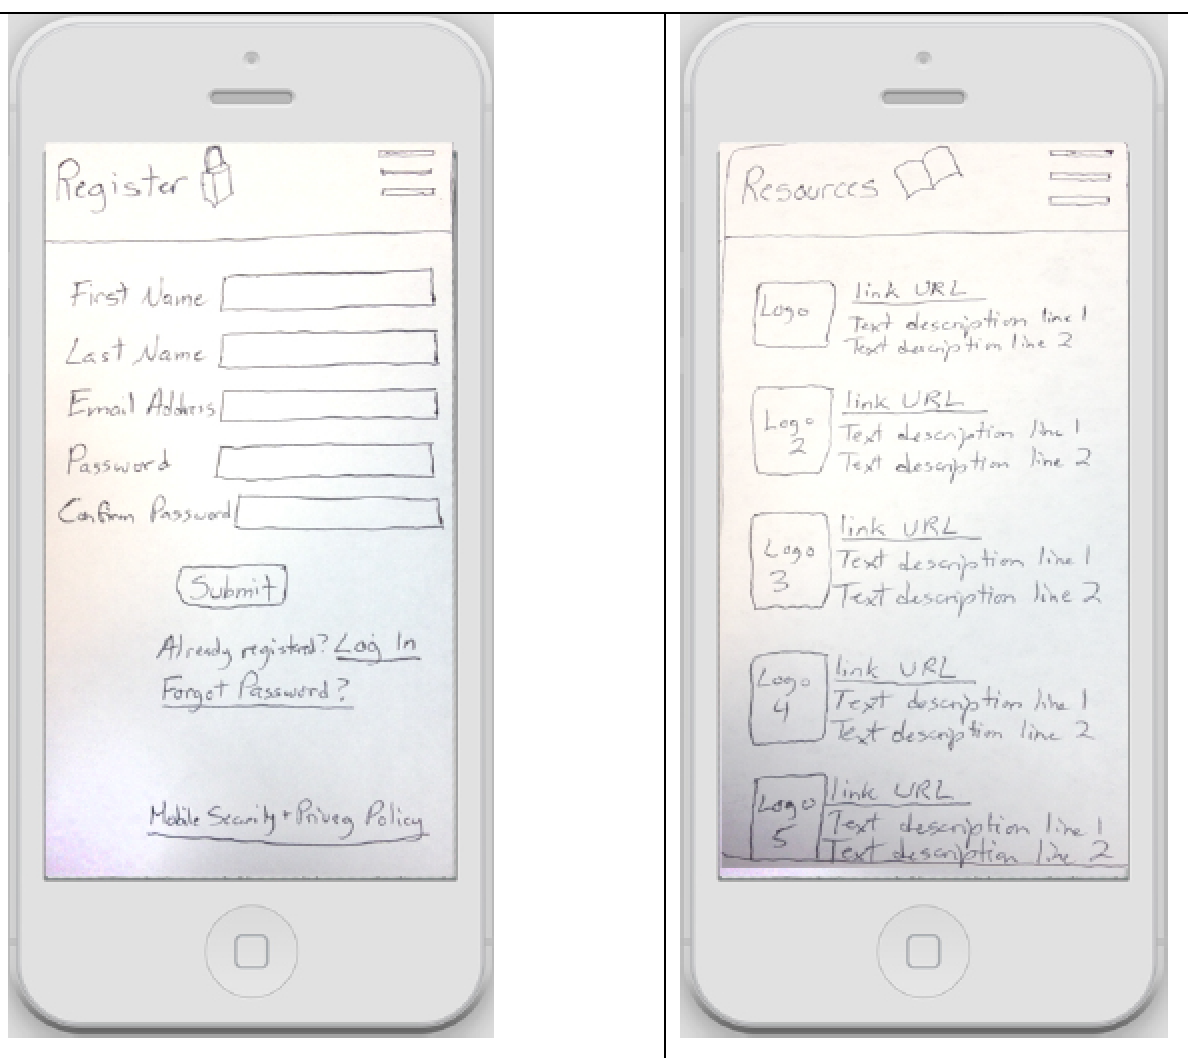 Register
First Name
Last Name
Email Address
Password
Confirm Password
Submit
Already registered? Log In
Forgot Password?
Mobile Security + Privacy Policy
Resources
Logo
link URL
Text description line 1
Text description line 2
Logo
2
link URL
Text description line 1
Text description line 2
Logo
3
link URL
Text description line 1
Text description line 2
Logo
4
link URL
Text description line 1
Text description line 2
Logo
5
link URL
Text description line 1
Text description line 2